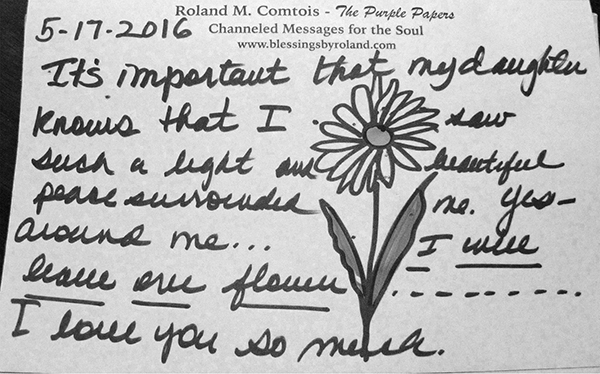 Roland M. Comtois - The Purple Papers
5-17-2016 Channeled Messages for the Soul
www.blessingsbyroland.com
It's important that my daughter
knows that I saw
such a light and beautiful
peace surrounded me. Yes-
around me... I will
leave one flower
I love you so much.